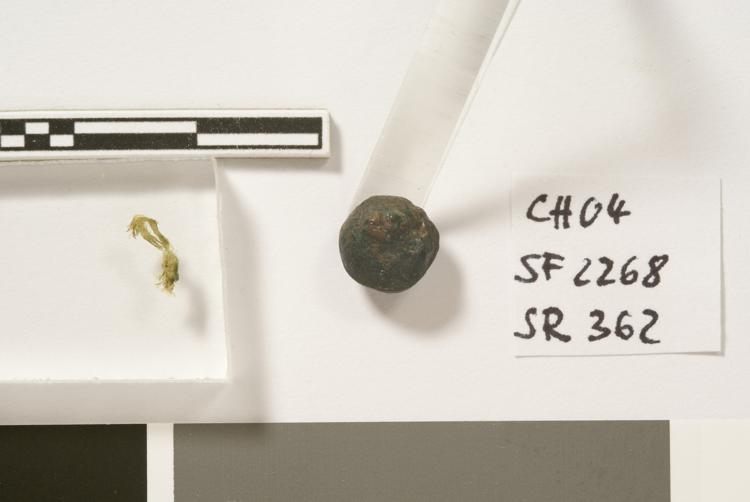 CH04
SF 2268
SR 362